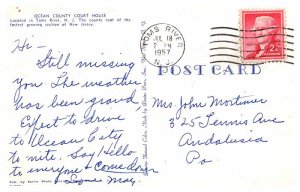 OCEAN COUNTY COURT HOUSE
Located in Toms River, N. J. The county seat of the
fastest growing section of New Jersey.
Hi -
Still missing
you. The weather
has been grand,
Expect to drive
to Ocean City
to nite. Say Hello
to everyone & come down
Love May.
TOMS RIVER
JUL 18
PM
1957
N.J.
2¢
POST CARD
Mrs John Mortimer
325 Tennis Ave
Andalusia
Pa.